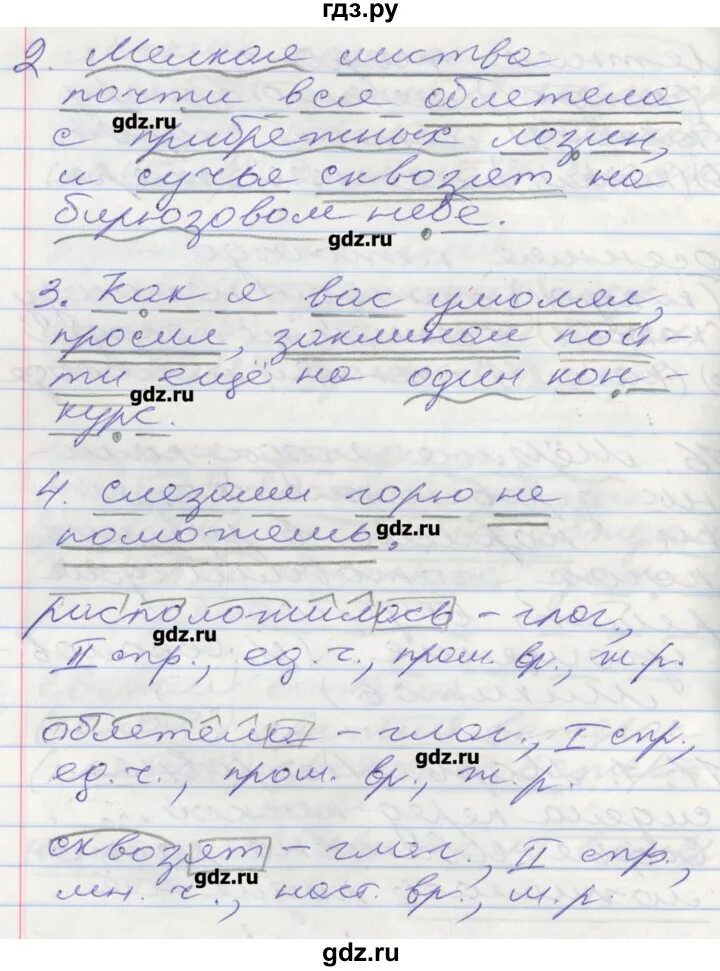 гдз.ру
2. Мелкая листва
почти вся облетела
gdz.ru
с прибрежных лозин,
и сучья сквозят на
бирюзовом небе.
gdz.ru
3. Как я вас умолял,
просил, заклинал пой-
ти ещё на один кон-
gdz.ru
курс.
4. Слезами горю не
поможешь.
gdz.ru
расположилось – глаг.,
gdz.ru
II спр., ед. ч., прош. вр., ж. р.
облетела – глаг., I спр.,
gdz.ru
ед. ч., прош. вр., ж. р.
сквозят – глаг., II спр.,
gdz.ru
мн. ч., наст. вр., м. р.
gdz.ru